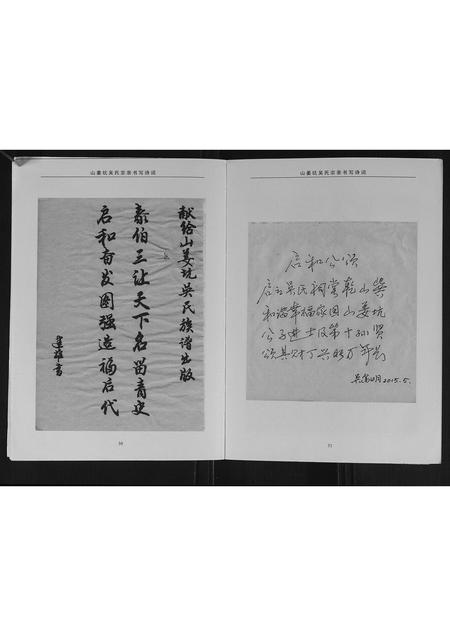 山姜坑吴氏宗亲书写诗词
献给山姜坑吴氏族谱出版
泰伯三让天下名留青史
启和奋发图强造福后代
建雄书
50
山姜坑吴氏宗亲书写诗词
启和公颂
启立吴氏祠堂乾山巽
和谐幸福家园山姜坑
公子进士及第十孙贤
颂其财丁兴旺万年芳
吴 明月 2015.5.
51